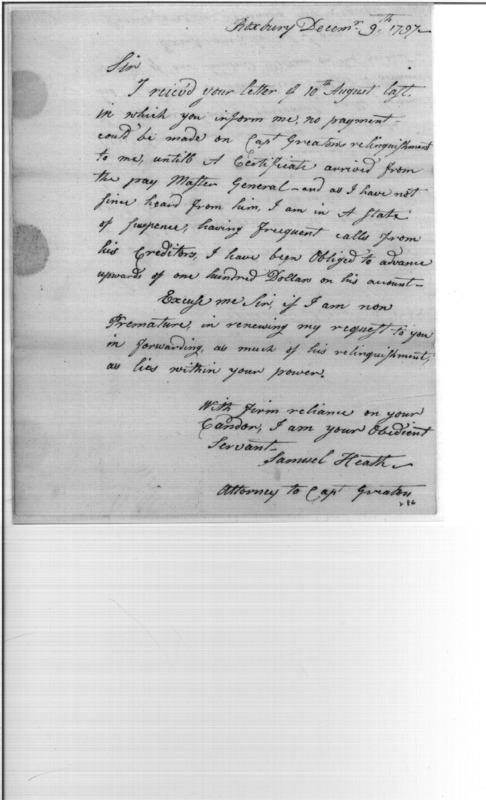 Roxbury Decemr. 9th. 1797
Sir
I reciev'd your letter of 10th August last.
in which you inform me, no payment
could be made on Capt Greatons relinquishment
to me, untill A Certificate arrived from
the pay Master General — and as I have not
since heard from him, I am in A state
of suspence, having frequent calls from
his Creditors, I have been Obliged to advance
upwards of one hundred Dollars on his account —
Excuse me Sir, if I am non
Premature, in renewing my request to you
in forwarding, as much of his relinquishment,
as lies within your power.
With firm reliance on your
Candor, I am your Obedient
Servant —
Samuel Heath
Attorney to Capt Greaton